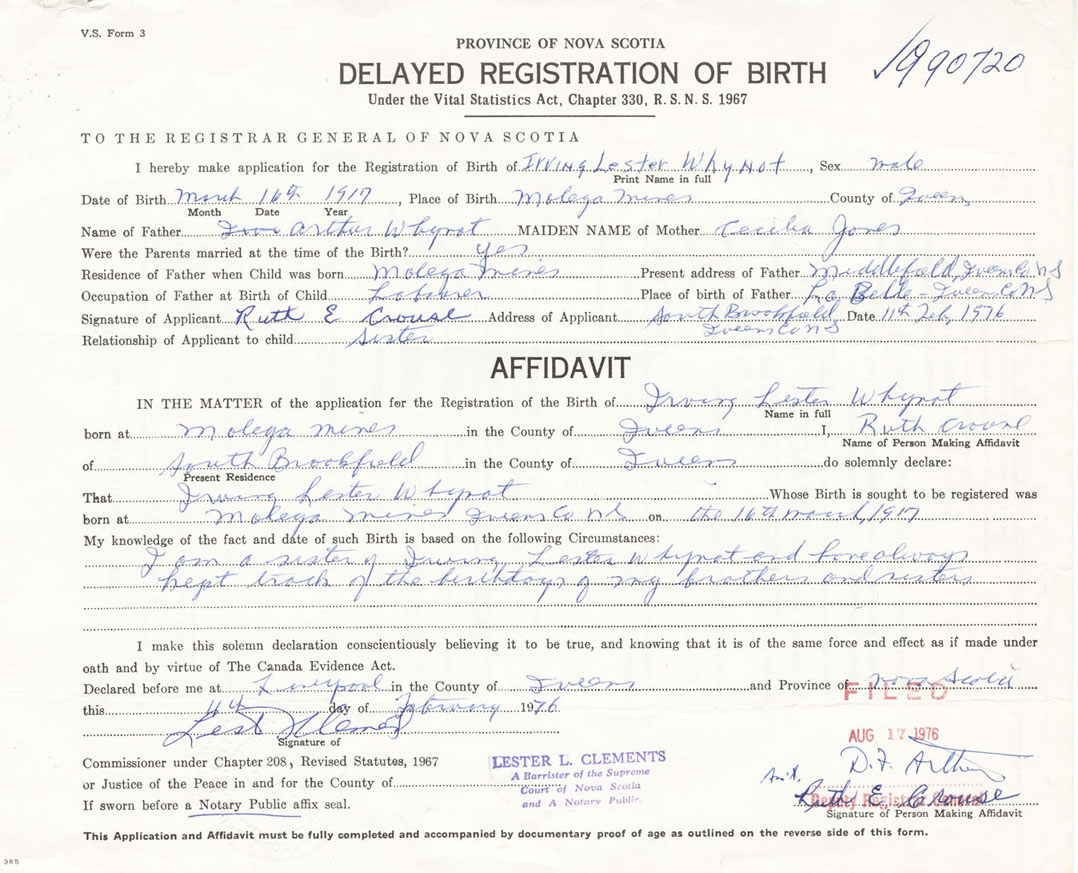 V.S. Form 3
PROVINCE OF NOVA SCOTIA
1990720
DELAYED REGISTRATION OF BIRTH
Under the Vital Statistics Act, Chapter 330, R. S. N. S. 1967
TO THE REGISTRAR GENERAL OF NOVA SCOTIA
I hereby make application for the Registration of Birth of Irving Lester Whynot, Sex male
Print Name in full
Date of Birth March 16th 1917, Place of Birth Molega Mines County of Queens
Month Date Year
Name of Father Arthur Whynot MAIDEN NAME of Mother Cecilia Jones
Were the Parents married at the time of the Birth? yes
Residence of Father when Child was born Molega Mines Present address of Father Middlefield, Queens Co NS
Occupation of Father at Birth of Child Labourer Place of birth of Father La Belle - Queens Co NS
Signature of Applicant Ruth E Crouse Address of Applicant South Brookfield Date 11th Feb, 1976
Queens Co NS
Relationship of Applicant to child sister
AFFIDAVIT
IN THE MATTER of the application for the Registration of the Birth of Irving Lester Whynot
Name in full
born at Molega Mines in the County of Queens I, Ruth Crouse
Name of Person Making Affidavit
of South Brookfield in the County of Queens do solemnly declare:
Present Residence
That Irving Lester Whynot Whose Birth is sought to be registered was
born at Molega Mines Queens Co NS on the 16th March, 1917
My knowledge of the fact and date of such Birth is based on the following Circumstances:
I am a sister of Irving Lester Whynot and have always
kept track of the birthdays of my brothers and sisters
I make this solemn declaration conscientiously believing it to be true, and knowing that it is of the same force and effect as if made under
oath and by virtue of The Canada Evidence Act.
Declared before me at Liverpool in the County of Queens and Province of Nova Scotia
FILED
this 11th day of February 1976
Signature of
AUG 17 1976
Commissioner under Chapter 208, Revised Statutes, 1967
LESTER L. CLEMENTS
A Barrister of the Supreme
Court of Nova Scotia
and A Notary Public.
or Justice of the Peace in and for the County of
Deputy Registrar General
Ruth E Crouse
If sworn before a Notary Public affix seal.
Signature of Person Making Affidavit
This Application and Affidavit must be fully completed and accompanied by documentary proof of age as outlined on the reverse side of this form.
385